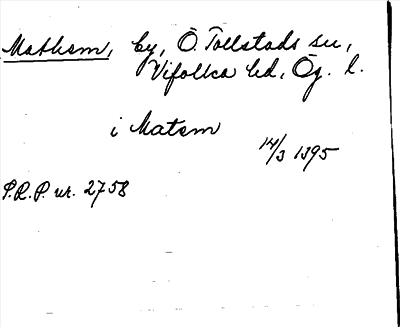 Mathem, by, Ö. Tollstads sn,
Vifolka hd, Ög. l.
i Matem
14/3 1395
S.R.P. nr. 2758